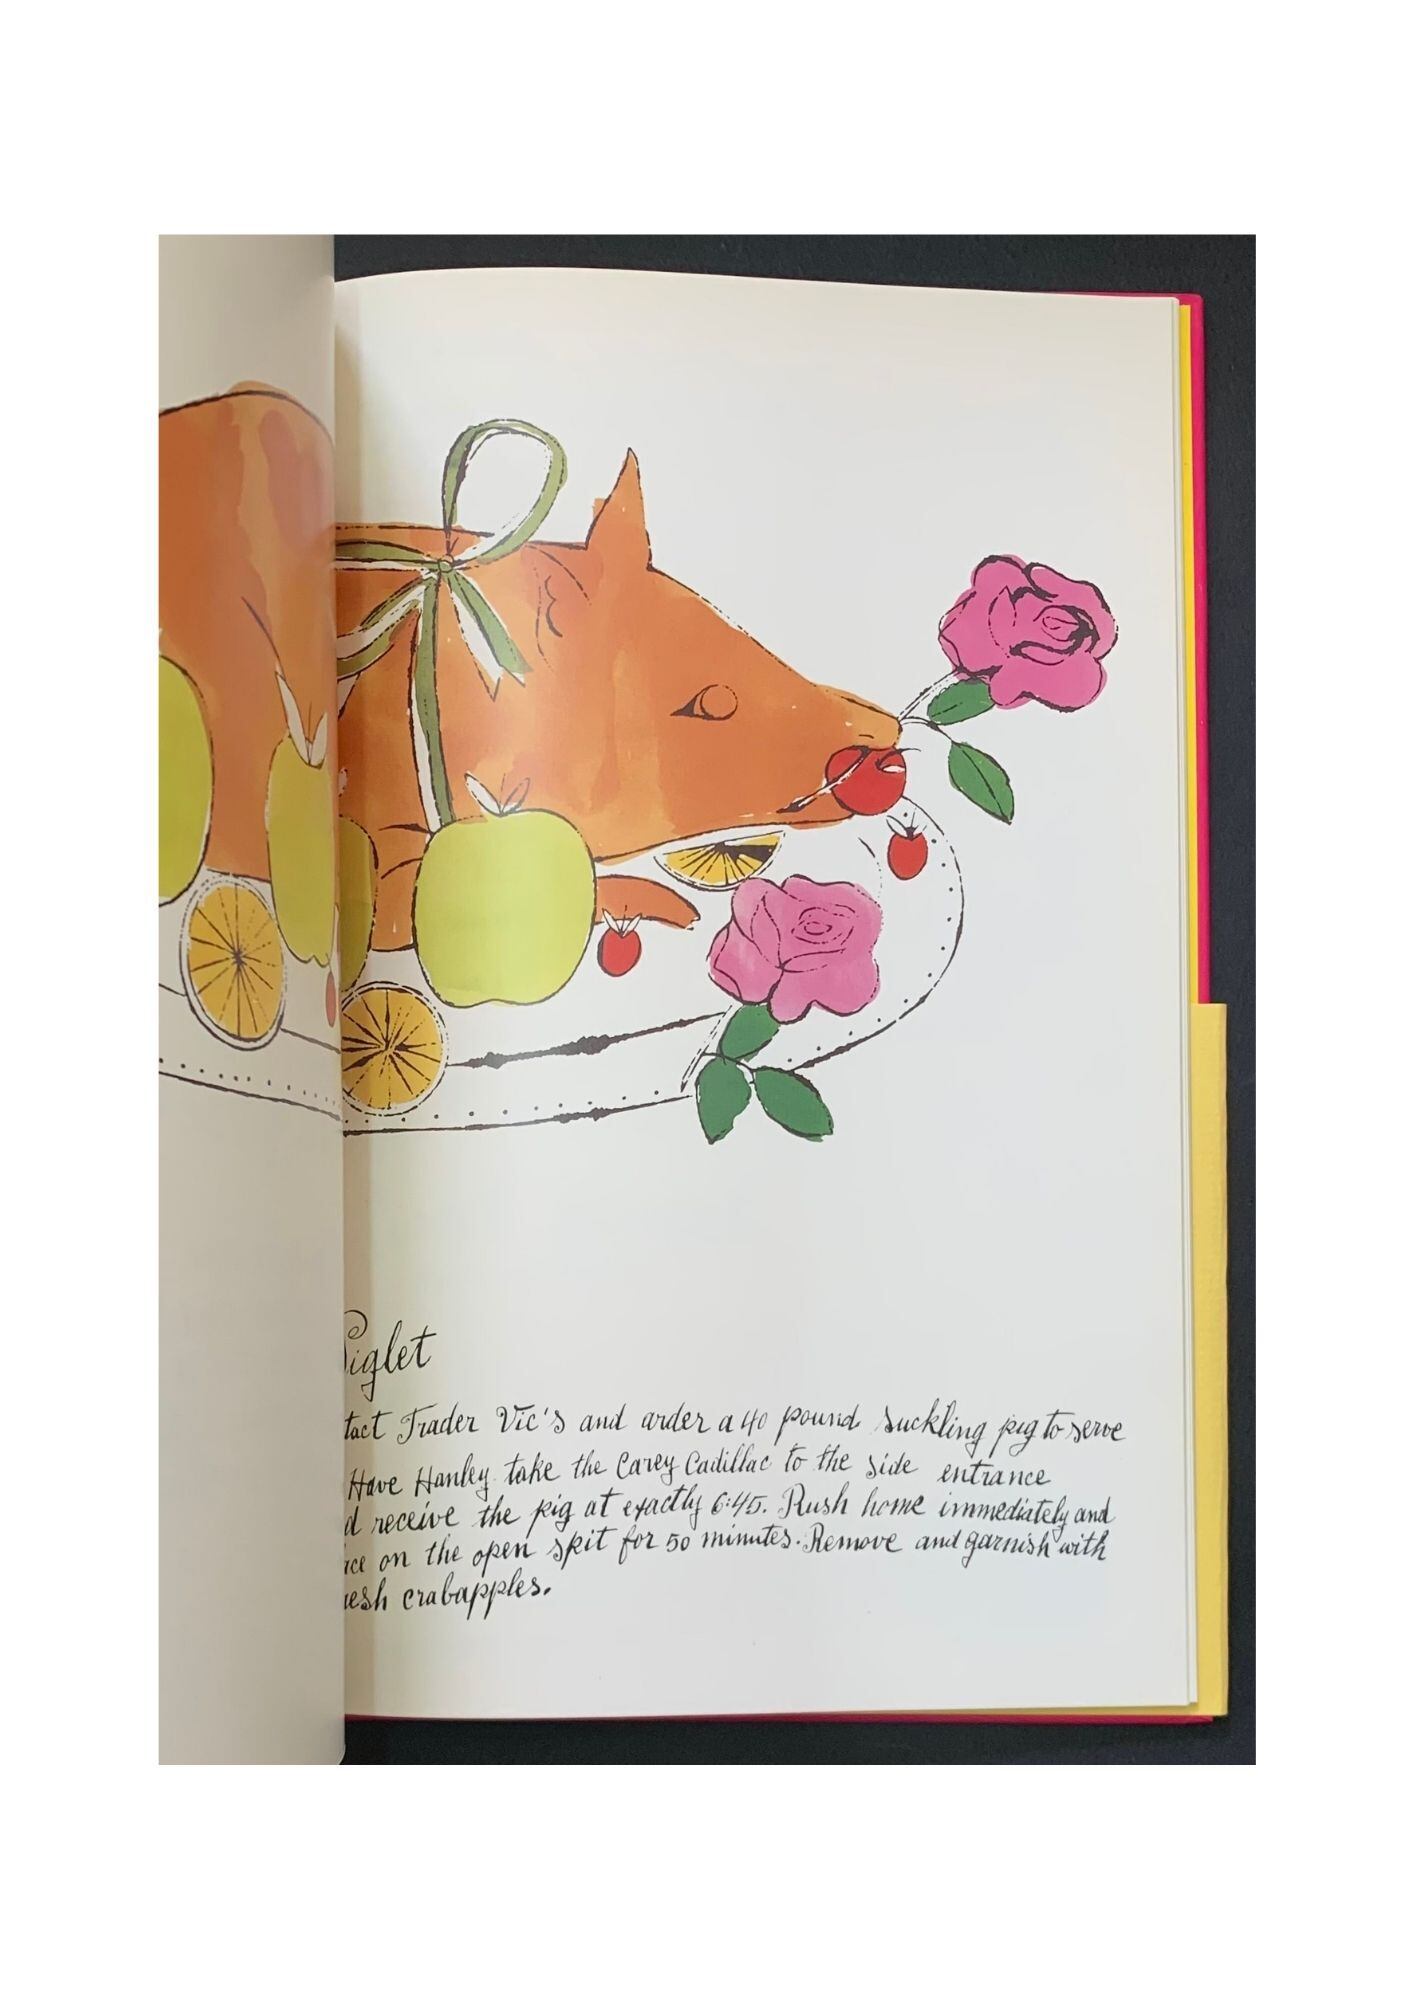 Piglet
tact Trader Vic's and arder a 40 pound suckling pig to serve
Have Hanley take the Carey Cadillac to the side entrance
d receive the pig at exactly 6:45. Rush home immediately and
ace on the open spit for 50 minutes. Remove and garnish with
resh crabapples.